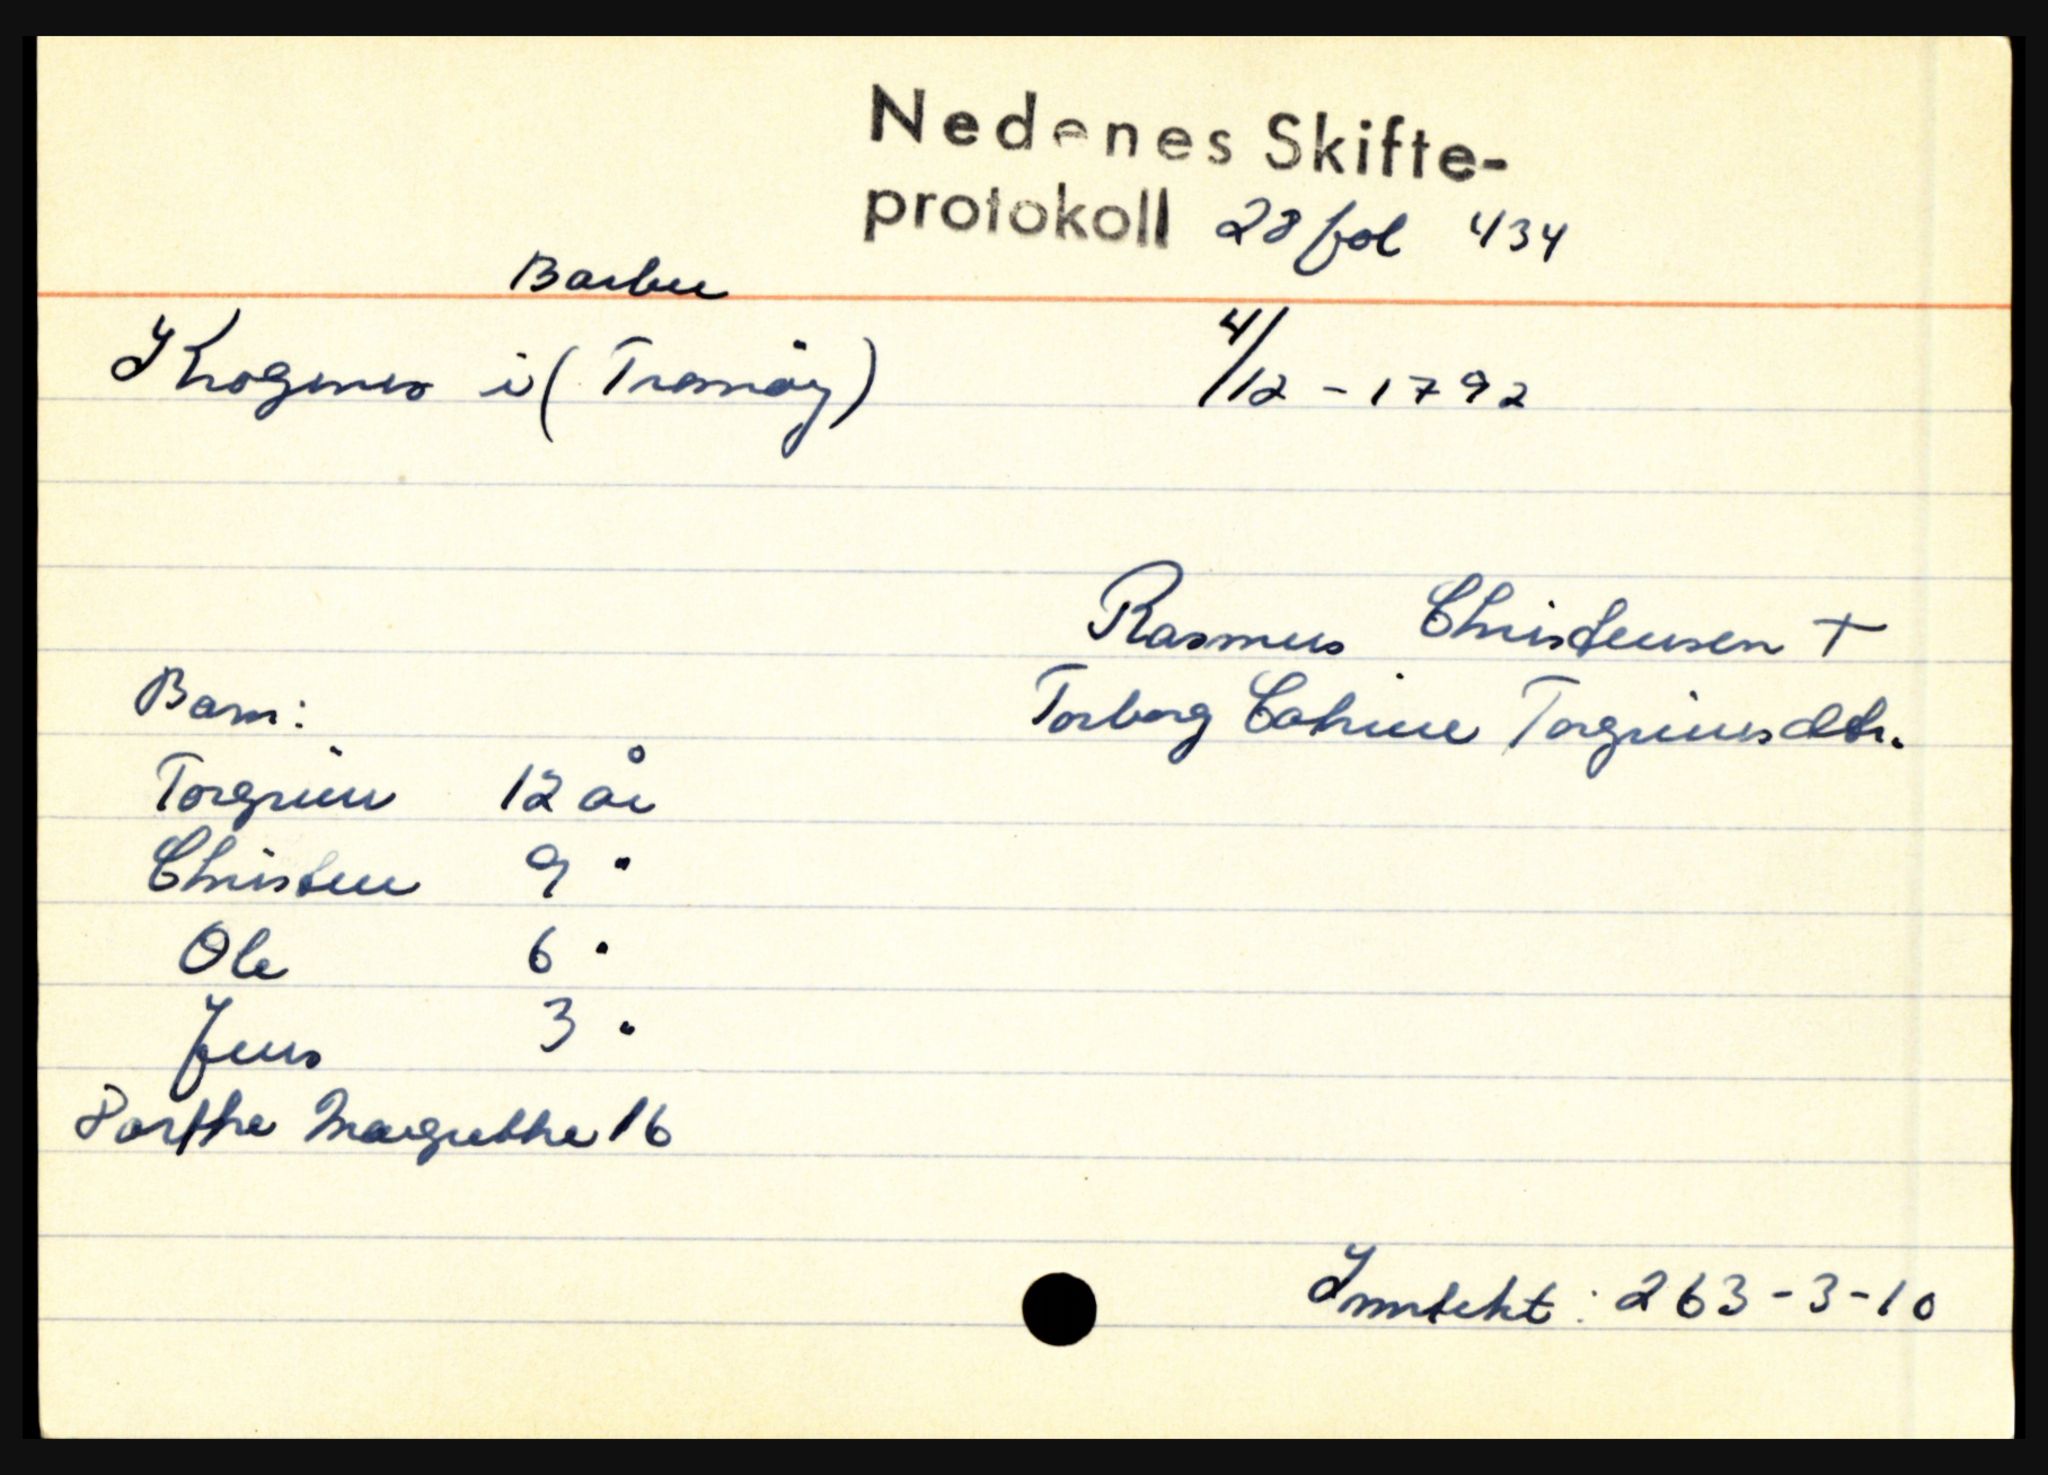 Nedenes Skifte-
protokoll 28 fol 434
Barbu
Krogenes i (Tromöy) 4/12 - 1792
Rasmus Christensen +
Barn: Torborg Cathrine Torgrimsdtr.
Torgrim 12 år
Christen 9 "
Ole 6 "
Jens 3 "
Dorthe Margrethe 16
Inntekt: 263-3-10